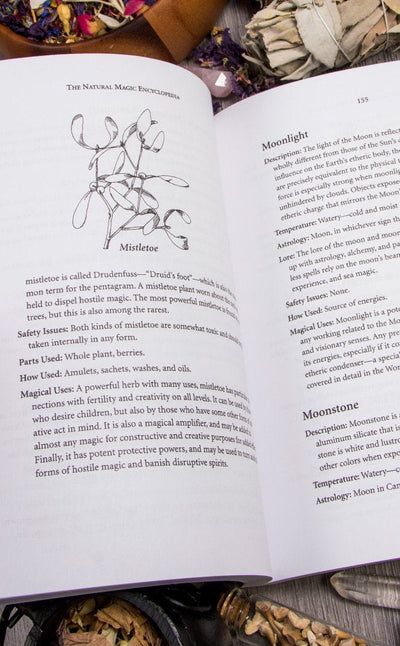 The Natural Magic Encyclopedia
Mistletoe
mistletoe is called Drudenfuss—"Druid's foot"—which is also
mon term for the pentagram. A mistletoe plant worn about the
held to dispel hostile magic. The most powerful mistletoe is
trees, but this is also among the rarest.
Safety Issues: Both kinds of mistletoe are somewhat toxic and
taken internally in any form.
Parts Used: Whole plant, berries.
How Used: Amulets, sachets, washes, and oils.
Magical Uses: A powerful herb with many uses, mistletoe has
nections with fertility and creativity on all levels. It can be used
who desire children, but also by those who have some other form of
ative act in mind. It is also a magical amplifier, and may be added
almost any magic for constructive and creative purposes for added
Finally, it has potent protective powers, and may be used to turn
forms of hostile magic and banish disruptive spirits.
155
Moonlight
Description: The light of the Moon is reflec
wholly different from those of the Sun's
influence on the Earth's etheric body, the
are precisely equivalent to the physical t
force is especially strong when moonlig
unhindered by clouds. Objects expose
etheric charge that mirrors the Moon's
Temperature: Watery—cold and moist
Astrology: Moon, in whichever sign th
Lore: The lore of the moon and moon
up with astrology, alchemy, and pa
less spells rely on the moon's bea
experience, and sea magic.
Safety Issues: None.
How Used: Source of energies.
Magical Uses: Moonlight is a pot
any working related to the Mo
and visionary senses. Any pre
its energies, especially if it co
etheric condenser—a special
covered in detail in the Wor
Moonstone
Description: Moonstone is
aluminum silicate that is
stone is white and lustro
other colors when expo
Temperature: Watery—c
Astrology: Moon in Can